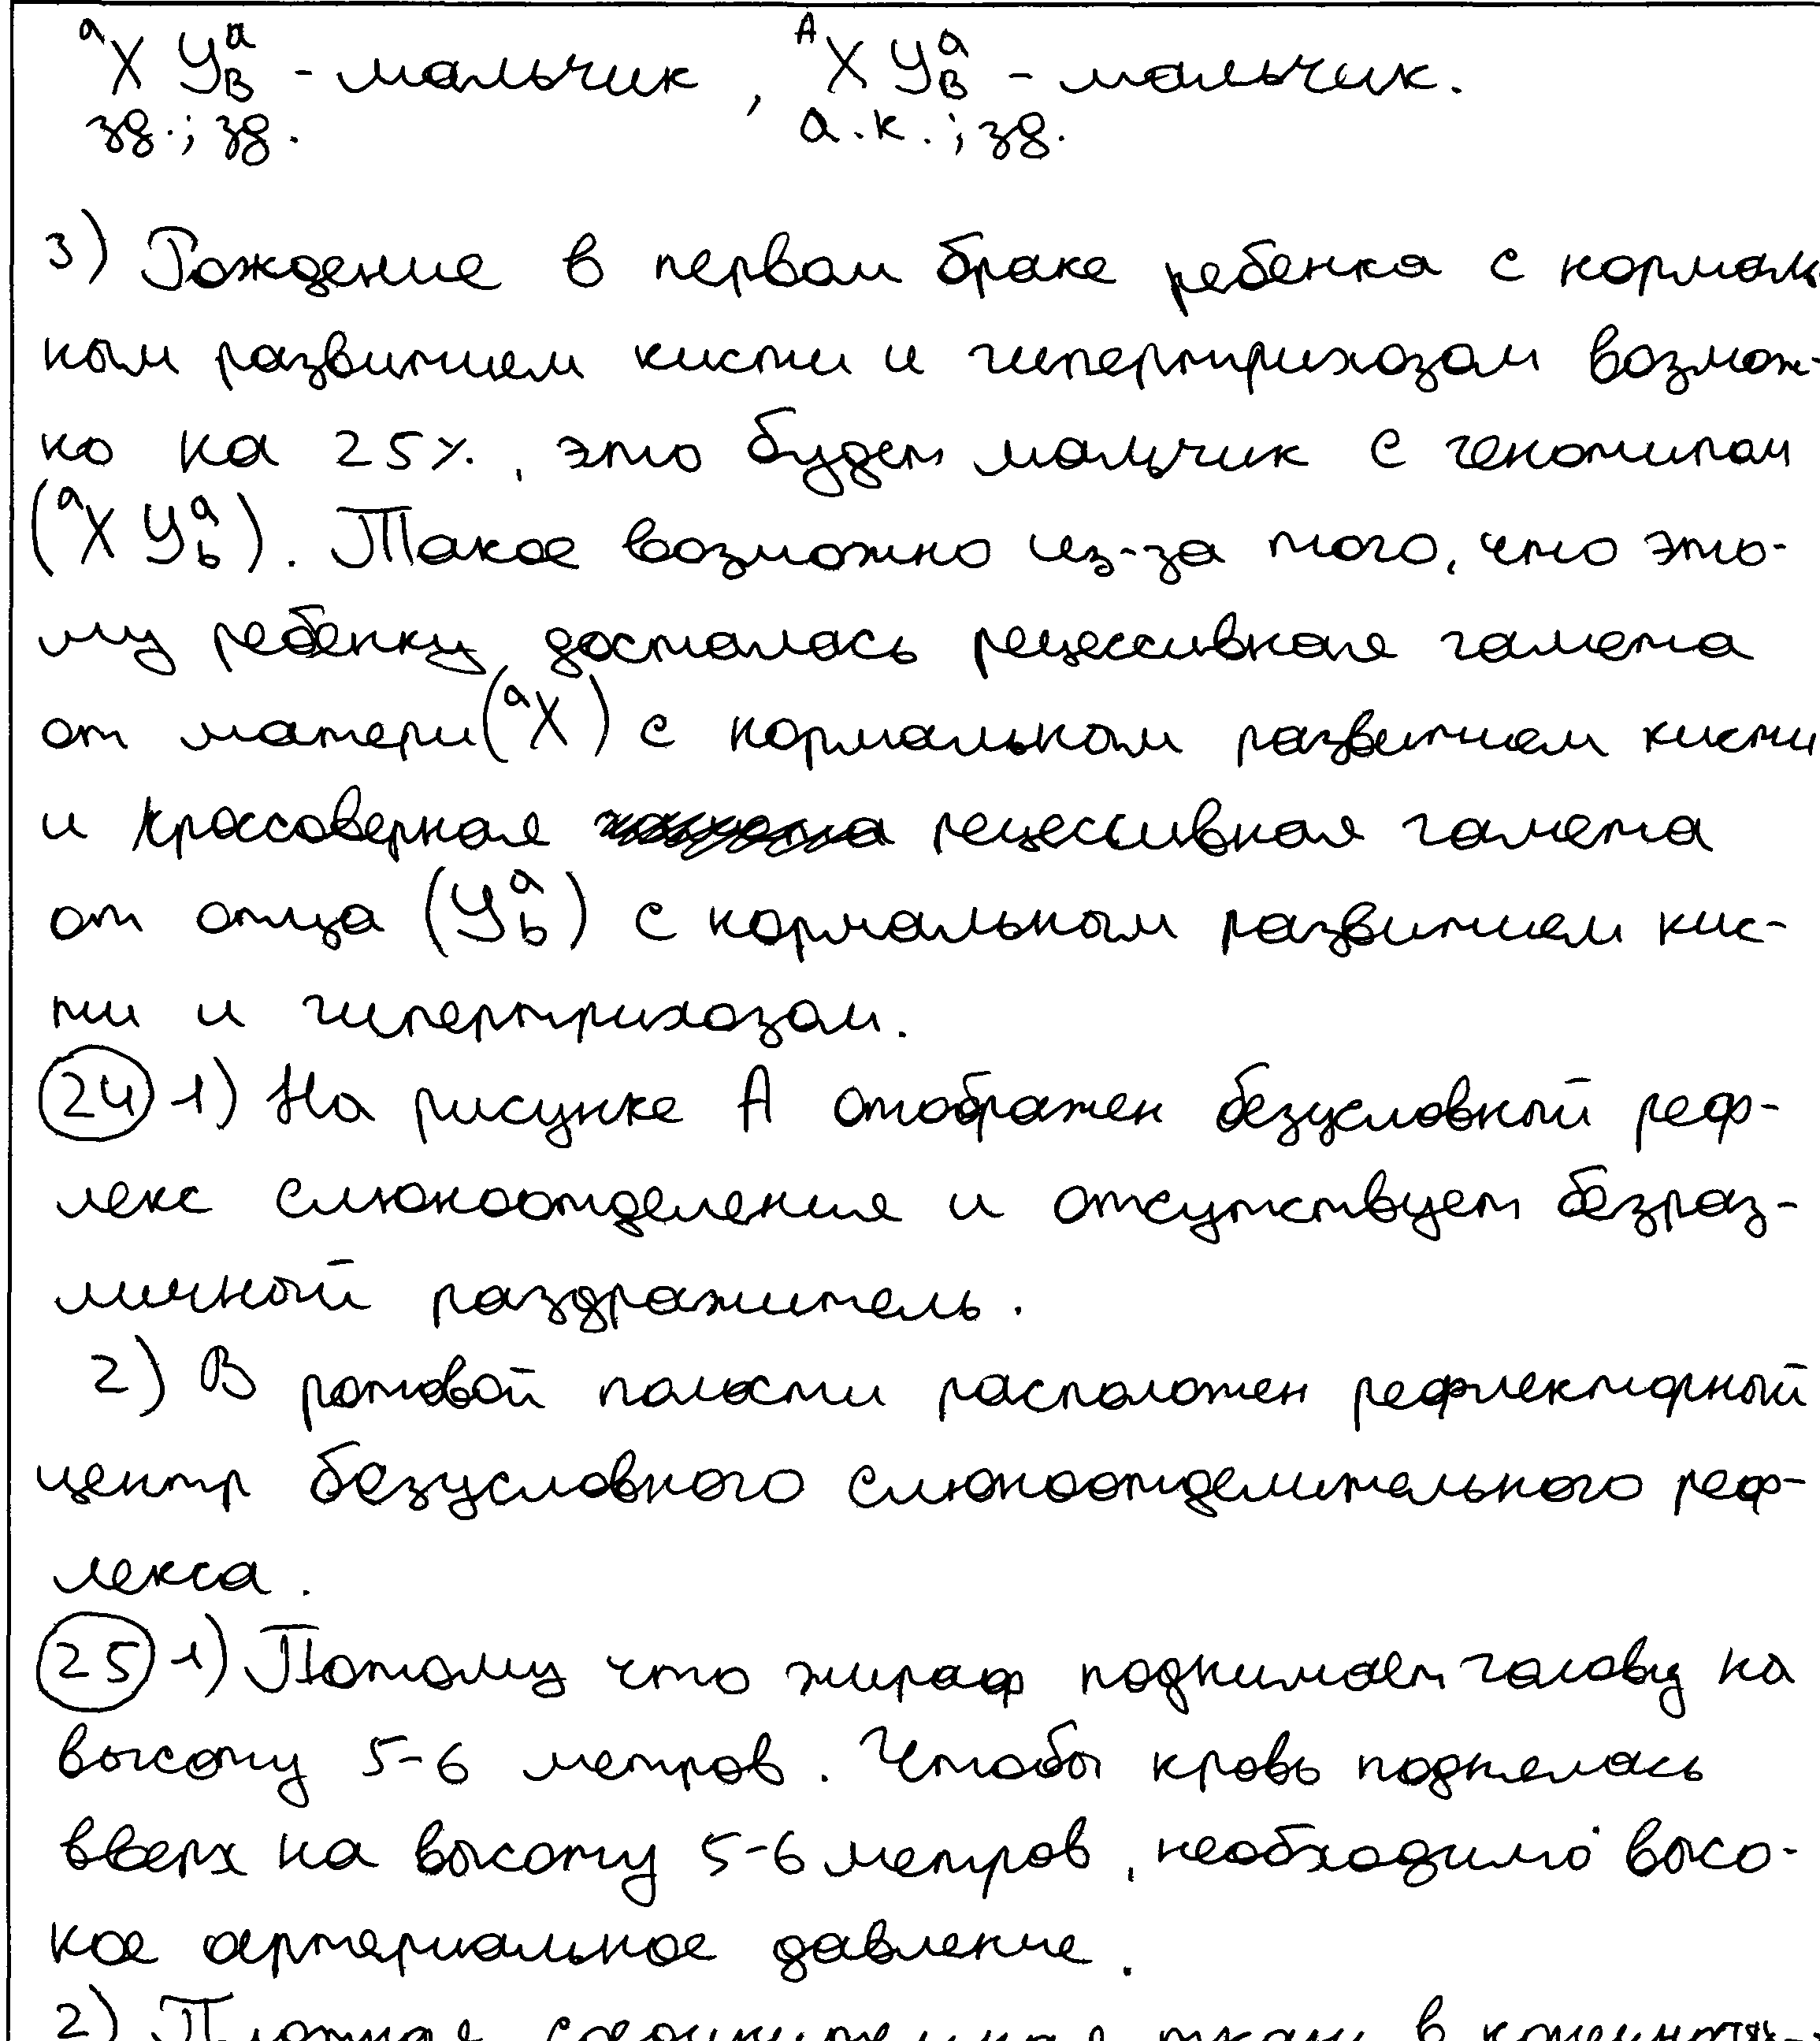 ᵃX Yᵃ_B - мальчик, ᴬX Yᵃ_B - мальчик.
зд.; зд. а.к.; зд.
3) Рождение в первом браке ребенка с нормаль
ным развитием кисти и гипертрихозом возмож-
но на 25%, это будет мальчик с генотипом
(ᵃX Yᵃ_b). Такое возможно из-за того, что это-
му ребенку досталась рецессивная гамета
от матери (ᵃX) с нормальном развитием кисти
и кроссоверная рецессивная гамета
от отца (Yᵃ_b) с нормальным развитием кис-
ти и гипертрихозом.
24 1) На рисунке А отображен безусловный реф-
лекс слюноотделения и отсутствует безраз-
личный раздражитель.
2) В ротовой полости расположен рефлекторный
центр безусловного слюноотделительного реф-
лекса.
25 1) Потому что жираф поднимает голову на
высоту 5-6 метров. Чтобы кровь поднялась
вверх на высоту 5-6 метров, необходимо высо-
кое артериальное давление.
2) Плотная соединительная ткань в